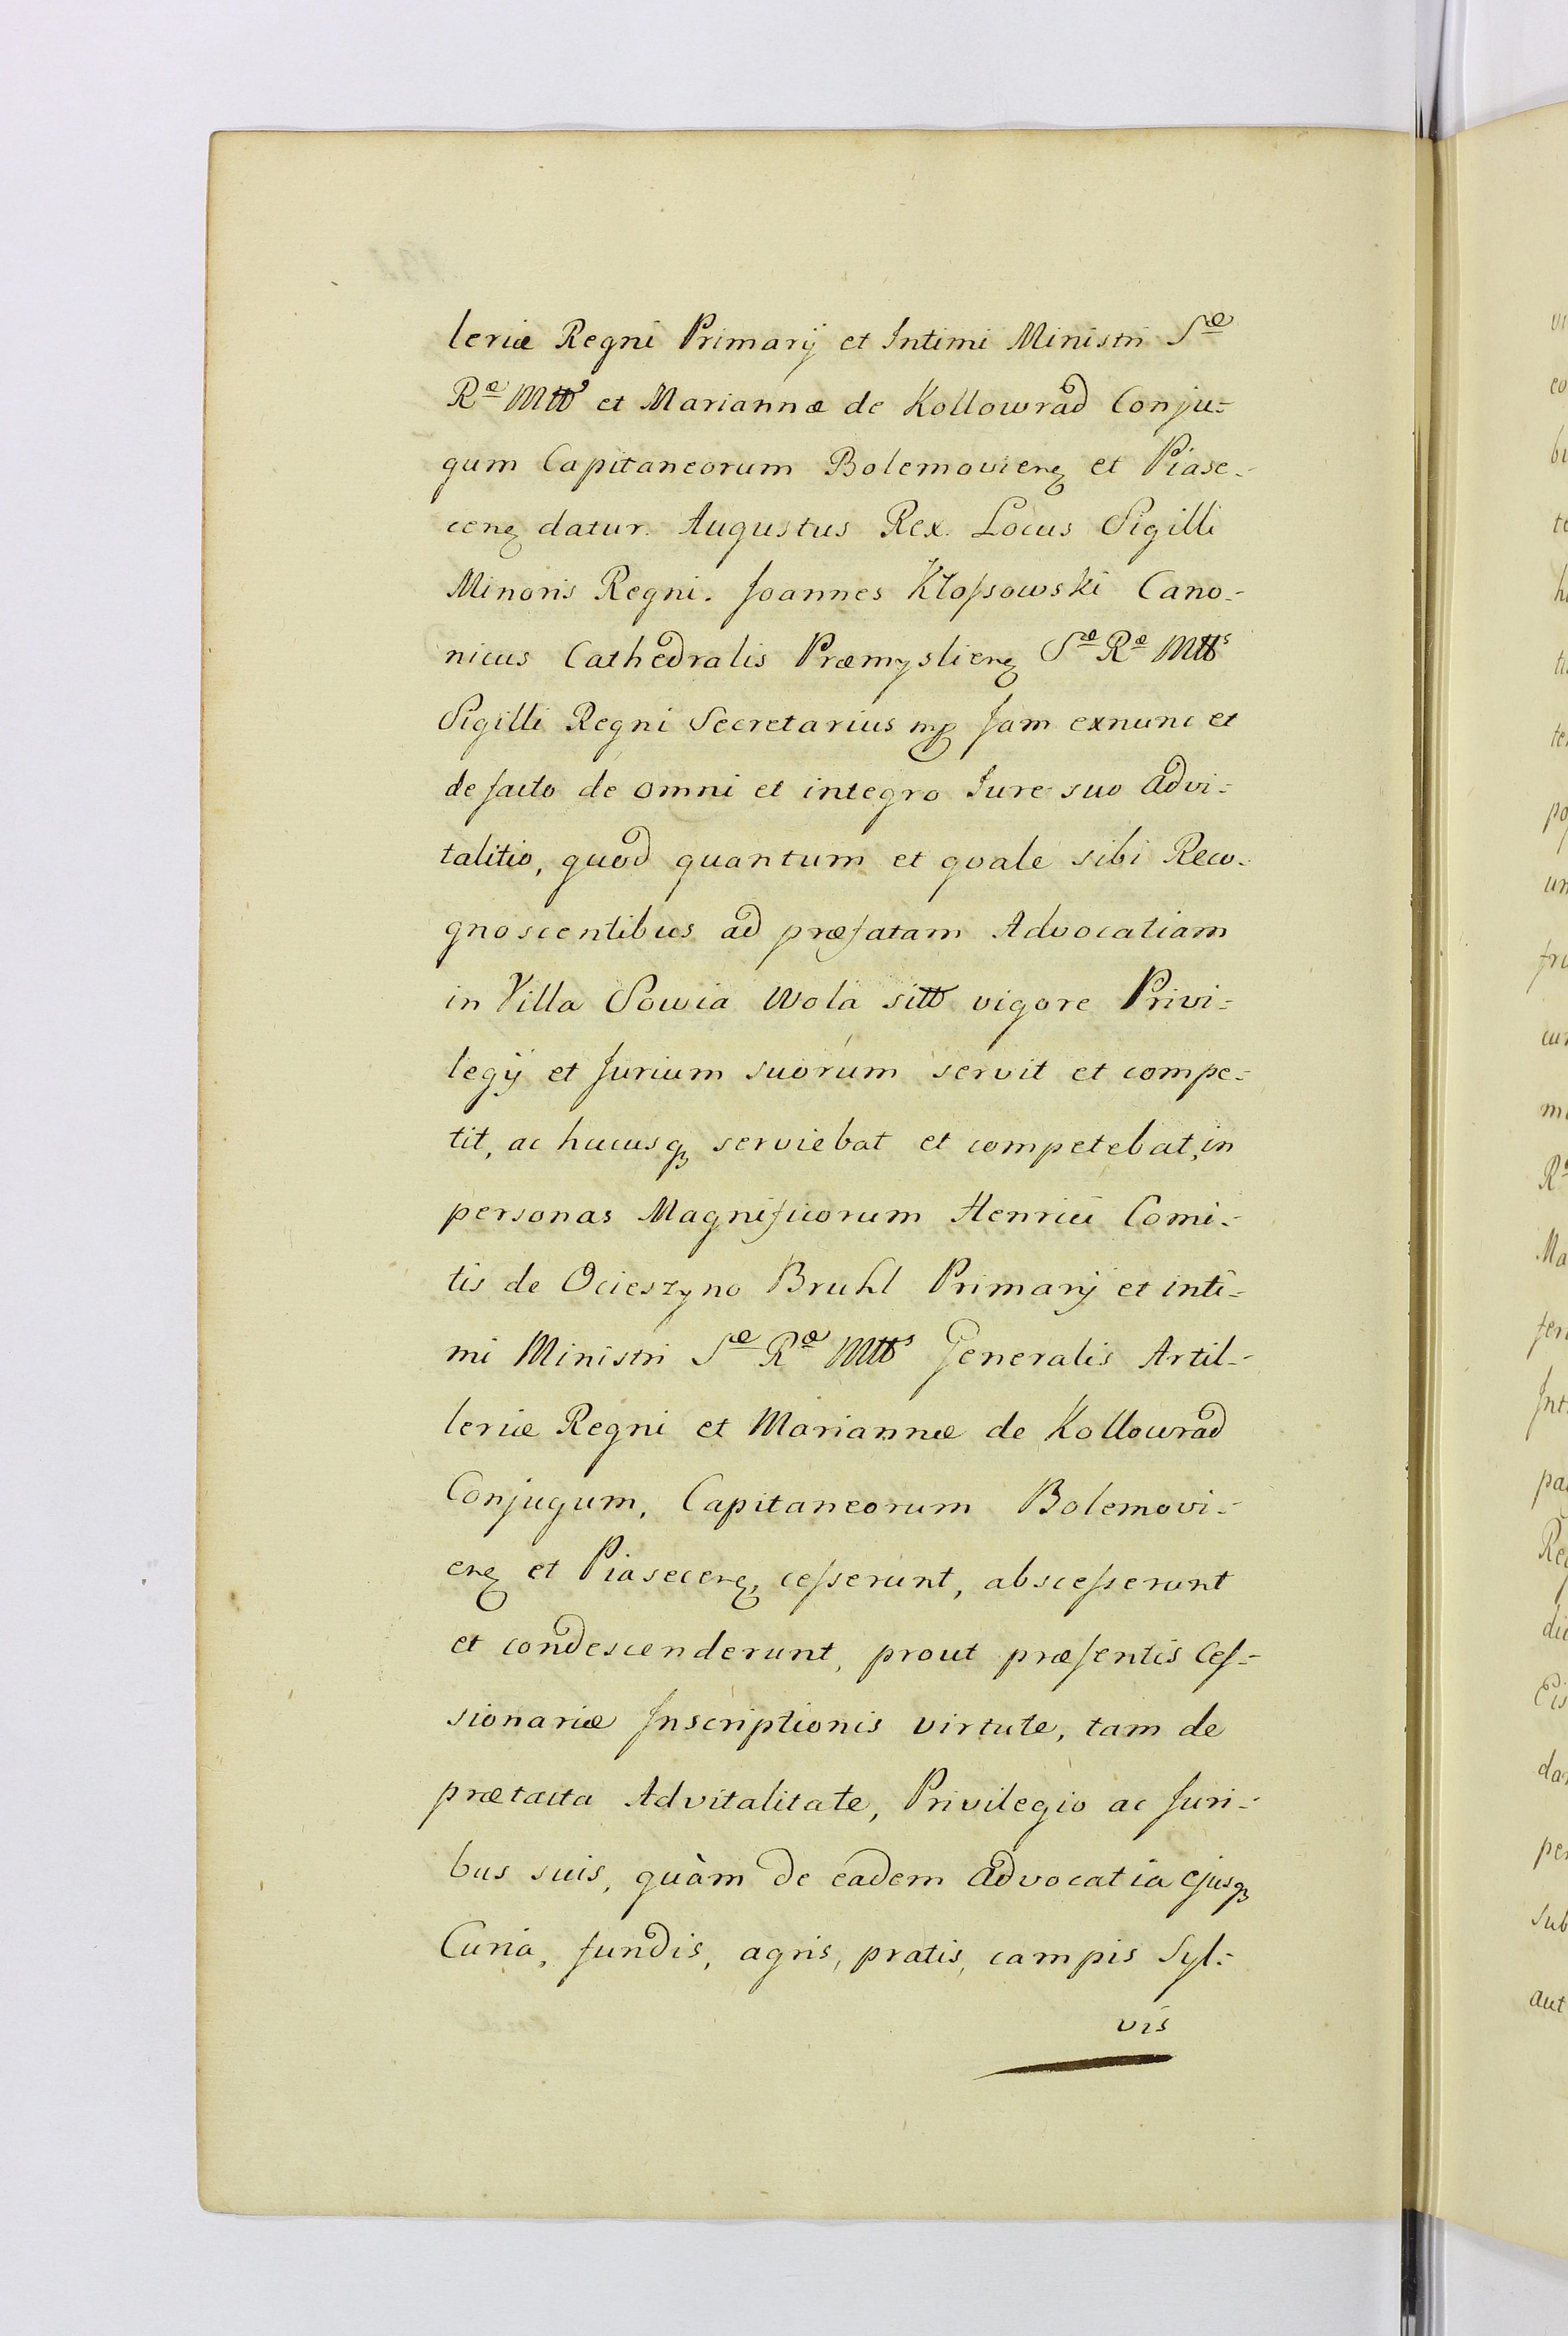 leriæ Regni Primarÿ et Intimi Ministri Sæ
Ræ Mtts et Mariannæ de Kollowrad Conju=
gum Capitaneorum Bolemovienꝫ et Piase=
cenꝫ datur. Augustus Rex. Locus Sigilli
Minoris Regni. Joannes Kłoſsowski Cano=
nicus Cathedralis Præmyslienꝫ Sæ Ræ Mtts
Sigilli Regni Secretarius mp Jam exnunc et
de facto de omni et integro Jure suo advi=
talitio, quod quantum et quale sibi Reco=
gnoscentibus ad præfatam Advocatiam
in Villa Sowia Wola sitt vigore Privi=
legÿ et Jurium suorum servit et compe=
tit, ac hucusqꝫ serviebat et competebat, in
personas Magnificorum Henrici Comi=
tis de Ocieszyno Bruhl Primarÿ et inti=
mi Ministri Sæ Ræ Mtts Generalis Artil=
leriæ Regni et Mariannæ de Kollowrad
Conjugum, Capitaneorum Bolemovi=
enꝫ et Piasecenꝫ, ceſserunt, absceſserunt
et condescenderunt, prout præſentis Ceſ=
sionariæ Inscriptionis virtute, tam de
prætacta Advitalitate, Privilegio ac Juri=
bus suis, quàm de eadem advocatia ejusqꝫ
Curia, fundis, agris, pratis, campis Syl=
vis